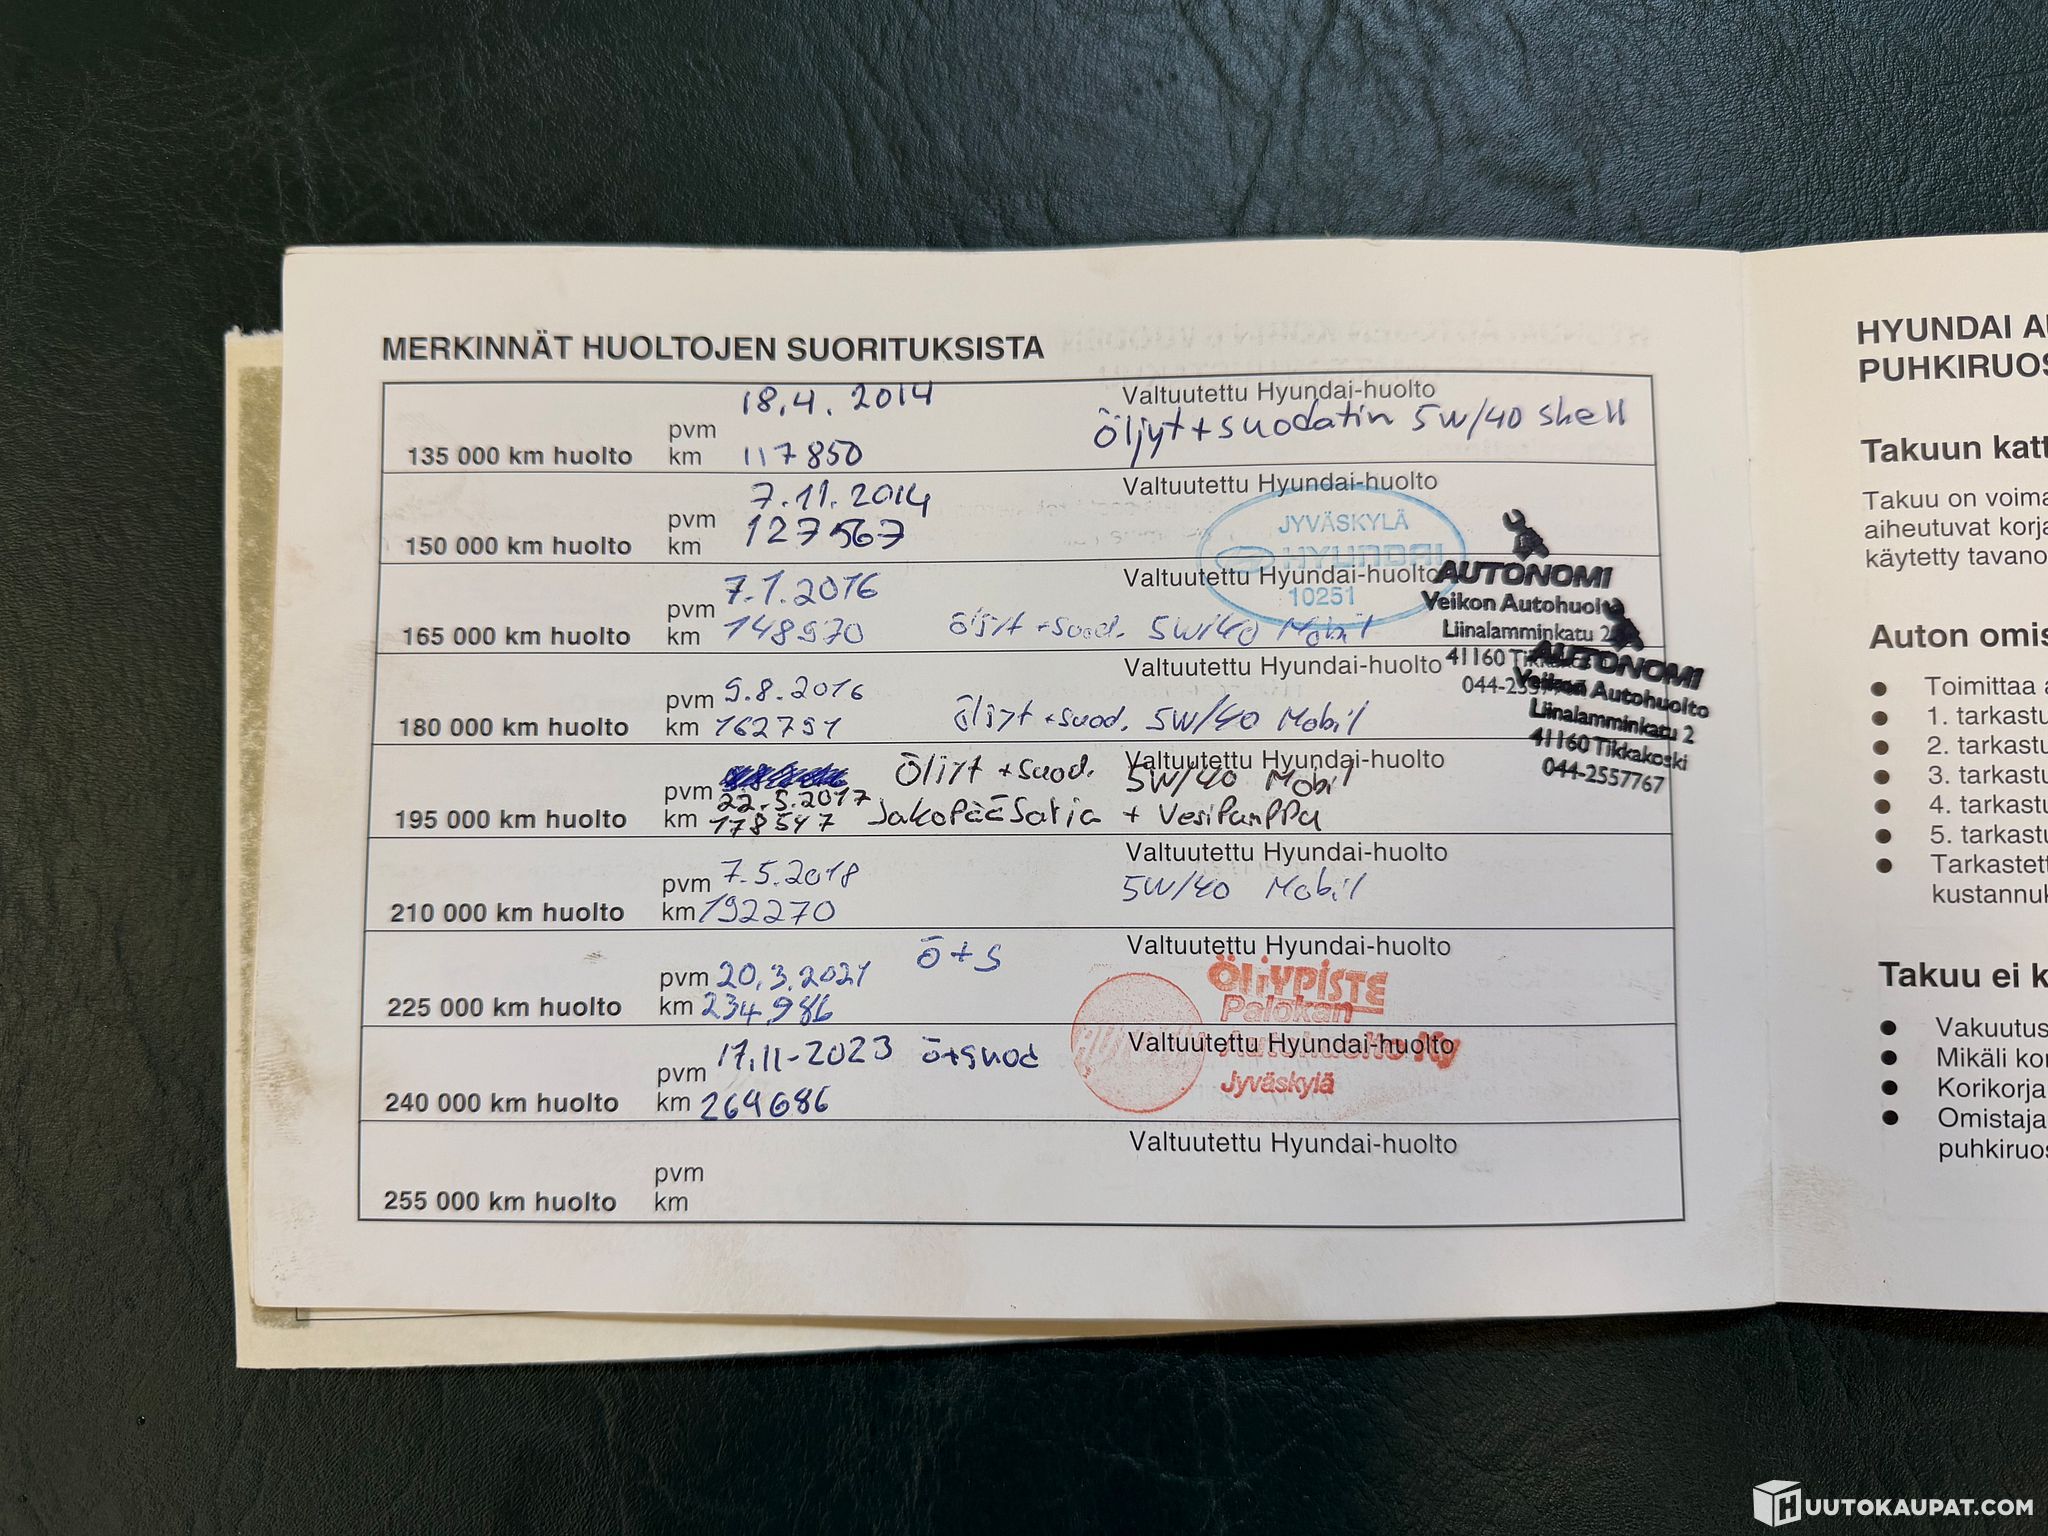 MERKINNÄT HUOLTOJEN SUORITUKSISTA
135 000 km huolto
pvm 18.4. 2014
km 117850
Valtuutettu Hyundai-huolto
Öljyt + suodatin 5W/40 Shell
150 000 km huolto
pvm 7.11.2014
km 127567
Valtuutettu Hyundai-huolto
JYVÄSKYLÄ
HYUNDAI
10251
165 000 km huolto
pvm 7.1.2016
km 148970
Valtuutettu Hyundai-huolto
öljyt + suod. 5W/40 Mobil
AUTONOMI
Veikon Autohuolto
Liinalamminkatu 2
41160
180 000 km huolto
pvm 9.8.2016
km 162791
Valtuutettu Hyundai-huolto
öljyt + suod. 5W/40 Mobil
AUTONOMI
Veikon Autohuolto
Liinalamminkatu 2
41160 Tikkakoski
044-2557767
195 000 km huolto
pvm 22.5.2017
km 178547
Valtuutettu Hyundai-huolto
Öljyt + suod. 5W/40 Mobil
Jakopääsarja + Vesipumppu
210 000 km huolto
pvm 7.5.2018
km 192270
Valtuutettu Hyundai-huolto
5W/40 Mobil
225 000 km huolto
pvm 20.3.2021
km 234986
ö+s
Valtuutettu Hyundai-huolto
ÖLJYPISTE
Palokan
Autohuolto Ky
Jyväskylä
240 000 km huolto
pvm 17.11-2023
km 264686
ö+suod
Valtuutettu Hyundai-huolto
255 000 km huolto
pvm
km
Valtuutettu Hyundai-huolto
HYUNDAI
Takuun
Takuu on
aiheutuvat
käytetty
Auton
● Toimittaa
● 1.
● 2.
● 3.
● 4.
● 5.
● 
Takuu ei
● 
● Mikäli
● 
● 
HUUTOKAUPAT.COM